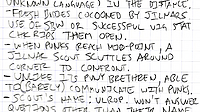 UNKNOWN LANGUAGE) IN THE DISTANCE.
- FRESH BODIES COCOONED BY JILMARS
USE OF SAW OR SUCCESSFUL VIA STAT
CHECK RIPS THEM OPEN.
- WHEN PUNKS REACH MID-POINT, A
JILMAR SCOUT SCUTTLES AROUND
CORNER TO CONFRONT.
- UNLIKE IT'S PUNY BRETHREN, ABLE
TO (BARELY) COMMUNICATE WITH PUNKS.
- SCOUT'S NAME: ULROP. WON'T ANSWER
QUESTIONS OTHER THAN THEIR NAME